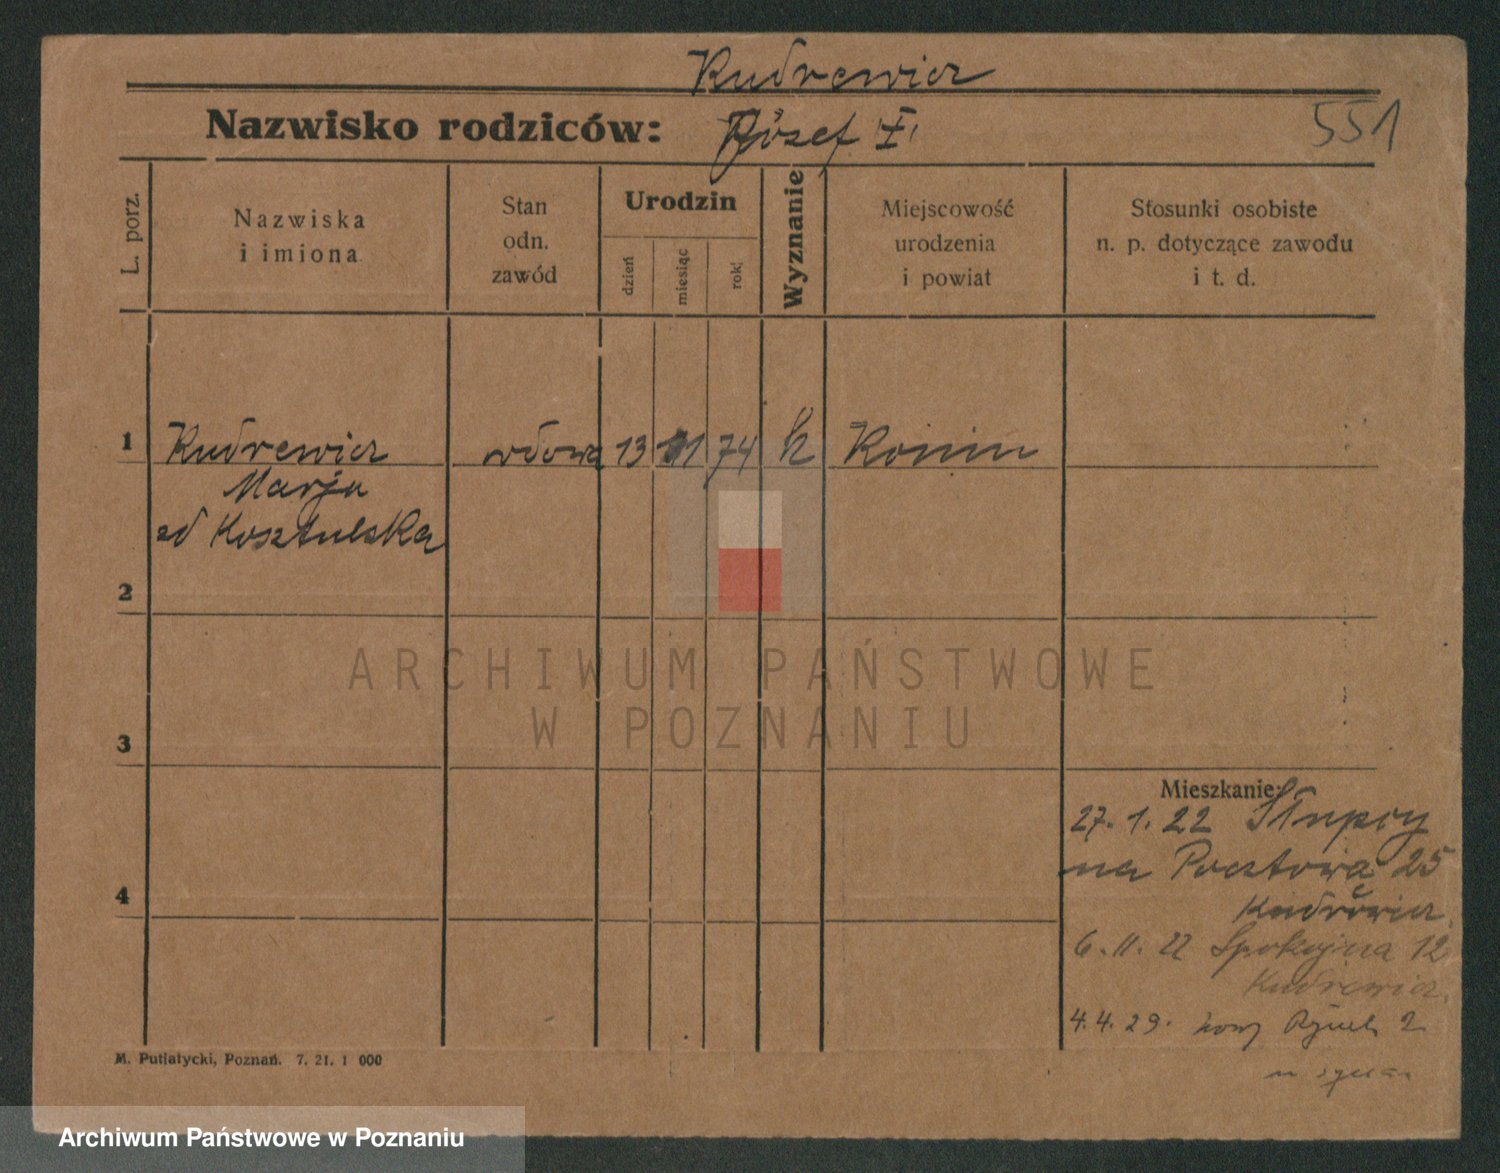 Kudrewicz
Nazwisko rodziców: Józef I
551
L. porz.
Nazwiska
i imiona
Stan
odn.
zawód
Urodzin
dzień
miesiąc
rok
Wyznanie
Miejscowość
urodzenia
i powiat
Stosunki osobiste
n. p. dotyczące zawodu
i t. d.
1 Kudrewicz wdowa 13 11 74 k Konin
Marja
zd Kosztulska
2
3
4
Mieszkanie:
27. 1. 22 Słupcy
na Pocztową 25
Kudrewicz
6. 11. 22 Spokojna 12
Kudrewicz
4. 4. 29. nowy Rynek 2
M. Putiatycki, Poznań. 7. 21. 1 000
ARCHIWUM PAŃSTWOWE
W POZNANIU
Archiwum Państwowe w Poznaniu